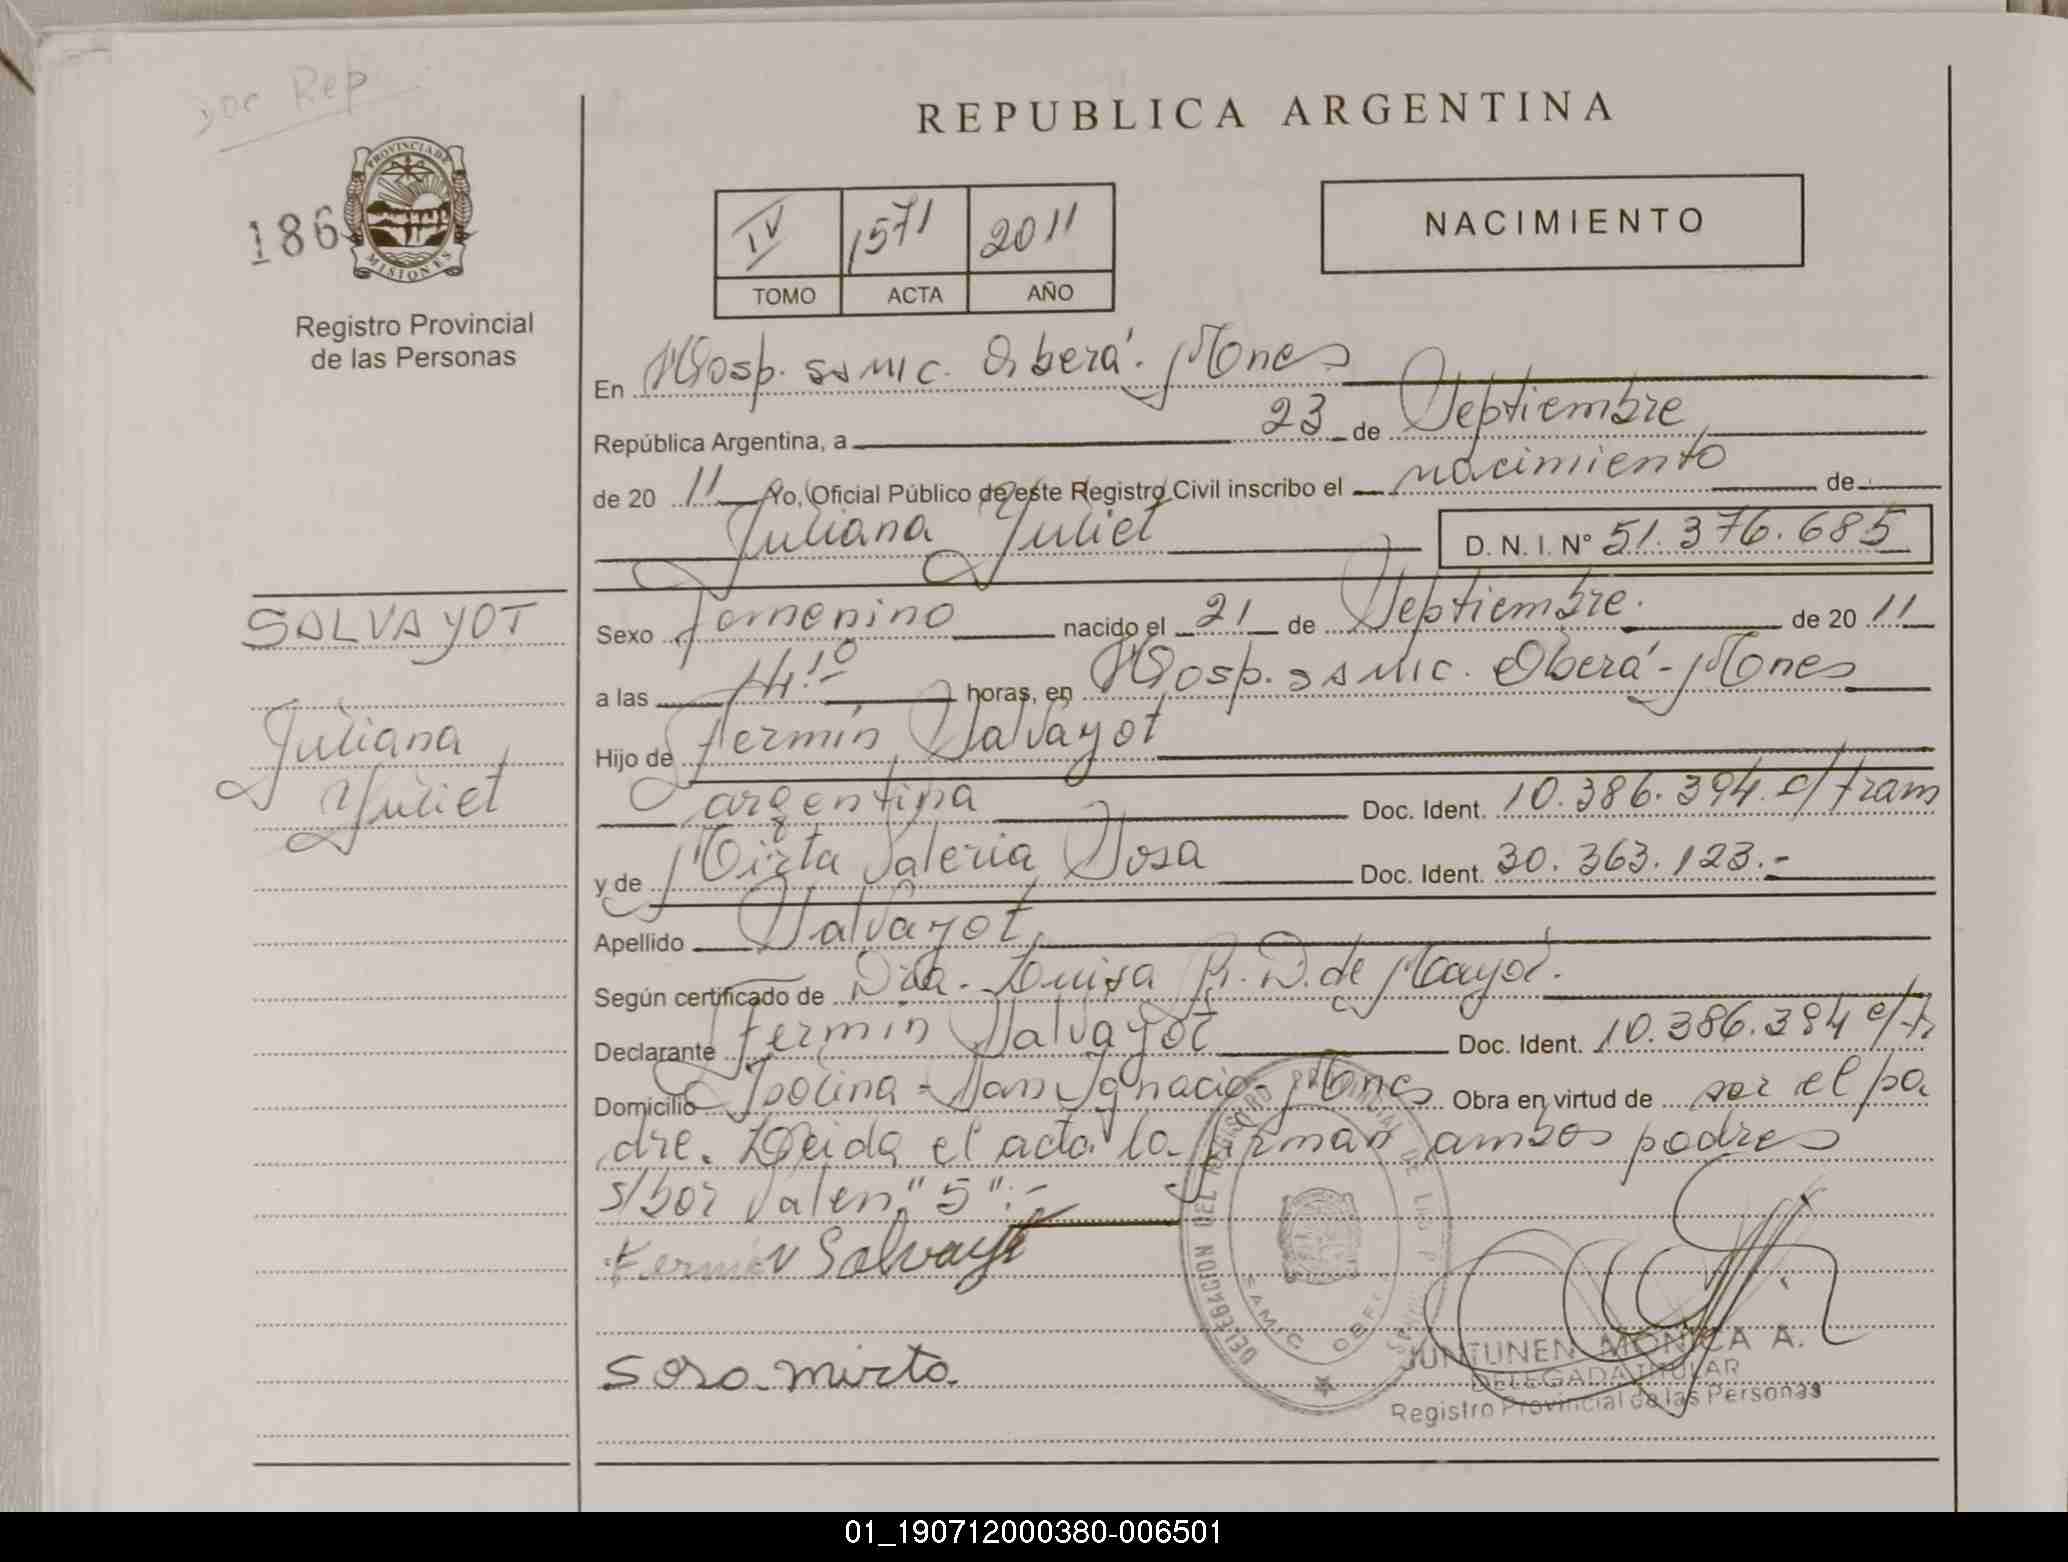 Doc Rep
REPUBLICA ARGENTINA
186
PROVINCIA DE
MISIONES
Registro Provincial
de las Personas
IV 1571 2011
TOMO ACTA AÑO
NACIMIENTO
En Hosp. SAMIC. Oberá. Mones
República Argentina, a 23 de Septiembre
de 20 11 Yo, Oficial Público de este Registro Civil inscribo el nacimiento de
Juliana Yuliet D. N. I. N° 51.376.685
SALVAYOT
Juliana
Yuliet
Sexo femenino nacido el 21 de Septiembre. de 20 11
a las 14.10 horas, en Hosp. SAMIC. Oberá - Mones
Hijo de Fermín Salvayot
argentina Doc. Ident. 10.386.394. c/tram
y de Mirta Valeria Sosa Doc. Ident. 30.363.123.-
Apellido Salvayot
Según certificado de Dra. Luisa R. D. de Mayol.
Declarante Fermín Salvayot Doc. Ident. 10.386.394 c/tr
Domicilio Ipolina - San Ignacio - Mones Obra en virtud de ser el pa
dre. Leida el acta la firman ambos padres
s/bor Valen "5".-
Fermin Salvayot
Soso mirta
DELEGACION DEL REGISTRO PROVINCIAL DE LAS PERSONAS
SAMIC OBERA
JUNTUNEN MONICA A.
DELEGADA TITULAR
Registro Provincial de las Personas
01_190712000380-006501